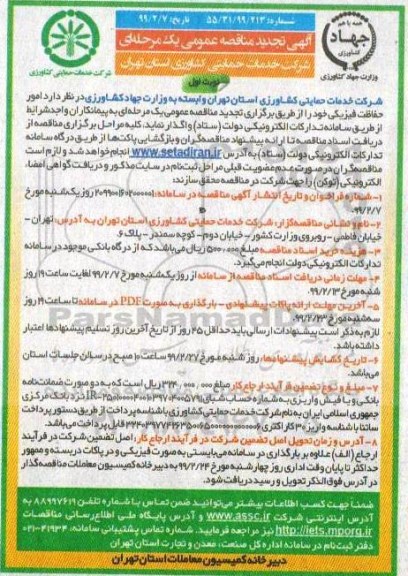 شماره: ۵۵/۳۱/۹۹/۲۱۳
تاریخ: ۹۹/۲/۷
آگهی تجدید مناقصه عمومی یک مرحله‌ای
شرکت خدمات حمایتی کشاورزی استان تهران
همه با هم
جهاد
کشاورزی
وزارت جهاد کشاورزی
شرکت خدمات حمایتی کشاورزی
نوبت اول
شرکت خدمات حمایتی کشاورزی استان تهران وابسته به وزارت جهاد کشاورزی در نظر دارد امور
حفاظت فیزیکی خود را از طریق برگزاری تجدید مناقصه عمومی یک مرحله‌ای به پیمانکاران واجد شرایط
از طریق سامانه تدارکات الکترونیکی دولت (ستاد) واگذار نماید. کلیه مراحل برگزاری مناقصه از
دریافت اسناد مناقصه تا ارائه پیشنهاد مناقصه‌گران و بازگشایی پاکت‌ها از طریق درگاه سامانه
تدارکات الکترونیکی دولت (ستاد) به آدرس www.setadiran.ir انجام خواهد شد و لازم است
مناقصه‌گران در صورت عدم عضویت قبلی مراحل ثبت‌نام در سایت مذکور و دریافت گواهی امضاء
الکترونیکی (توکن) را جهت شرکت در مناقصه محقق سازند:
۱- شماره فراخوان و تاریخ انتشار آگهی مناقصه در سامانه: روز یکشنبه مورخ
۹۹/۲/۷
۲- نام و نشانی مناقصه‌گزار: شرکت خدمات حمایتی کشاورزی استان تهران به آدرس: تهران -
خیابان فاطمی - روبروی وزارت کشور - خیابان دوم - کوچه سمندر - پلاک ۶.
۳- هزینه خرید اسناد مناقصه مبلغ ۵۰۰٫۰۰۰ ریال می‌باشد که از درگاه بانکی موجود در سامانه
تدارکات الکترونیکی دولت انجام می‌گیرد.
۴- مهلت زمانی دریافت اسناد مناقصه از سامانه از روز یکشنبه مورخ ۹۹/۲/۷ لغایت ساعت ۱۹ روز
شنبه مورخ ۹۹/۲/۱۳
۵- آخرین مهلت ارائه پاکات پیشنهادی - بارگذاری به صورت PDF در سامانه تا ساعت ۱۹ روز
سه‌شنبه مورخ ۹۹/۲/۲۳
لازم به ذکر است پیشنهادات ارسالی باید حداقل ۴۵ روز از تاریخ آخرین روز تسلیم پیشنهادها اعتبار
داشته باشد.
۶- تاریخ گشایش پیشنهادها: روز شنبه مورخ ۹۹/۲/۲۷ ساعت ۱۰ صبح در سالن جلسات استان
می‌باشد.
۷- مبلغ و نوع تضمین فرآیند ارجاع کار: مبلغ ۳۲۴٫۰۰۰٫۰۰۰ ریال است که به دو صورت ضمانت‌نامه
بانکی و یا فیش واریزی به شماره حساب شبای نزد بانک مرکزی
جمهوری اسلامی ایران به نام شرکت خدمات حمایتی کشاورزی با شناسه پرداخت از طریق دستور پرداخت
ساتنا با شناسه واریز ۳۰ کاراکتری قابل پرداخت می‌باشد.
۸- آدرس و زمان تحویل اصل تضمین شرکت در فرآیند ارجاع کار: اصل تضمین شرکت در فرآیند
ارجاع (الف) علاوه بر بارگذاری در سامانه می‌بایستی به صورت فیزیکی و در پاکات در بسته و ممهور
حداکثر تا پایان وقت اداری روز چهارشنبه مورخ ۹۹/۲/۲۴ به دبیرخانه کمیسیون معاملات مناقصه‌گذار
در آدرس فوق‌الذکر تحویل و رسید دریافت شود.
ضمناً جهت کسب اطلاعات بیشتر می‌توانید ضمن تماس با شماره تلفن ۸۸۹۹۷۶۱۹ به
آدرس اینترنتی شرکت www.assc.ir و آدرس پایگاه ملی اطلاع‌رسانی مناقصات
http://iets.mporg.ir نیز مراجعه فرمایید. شماره تماس پشتیبانی سامانه: ۴۱۹۳۴-۰۲۱
دفتر ثبت‌نام در سامانه اداره کل صنعت، معدن و تجارت استان تهران
دبیرخانه کمیسیون معاملات استان تهران
ParsNamadData